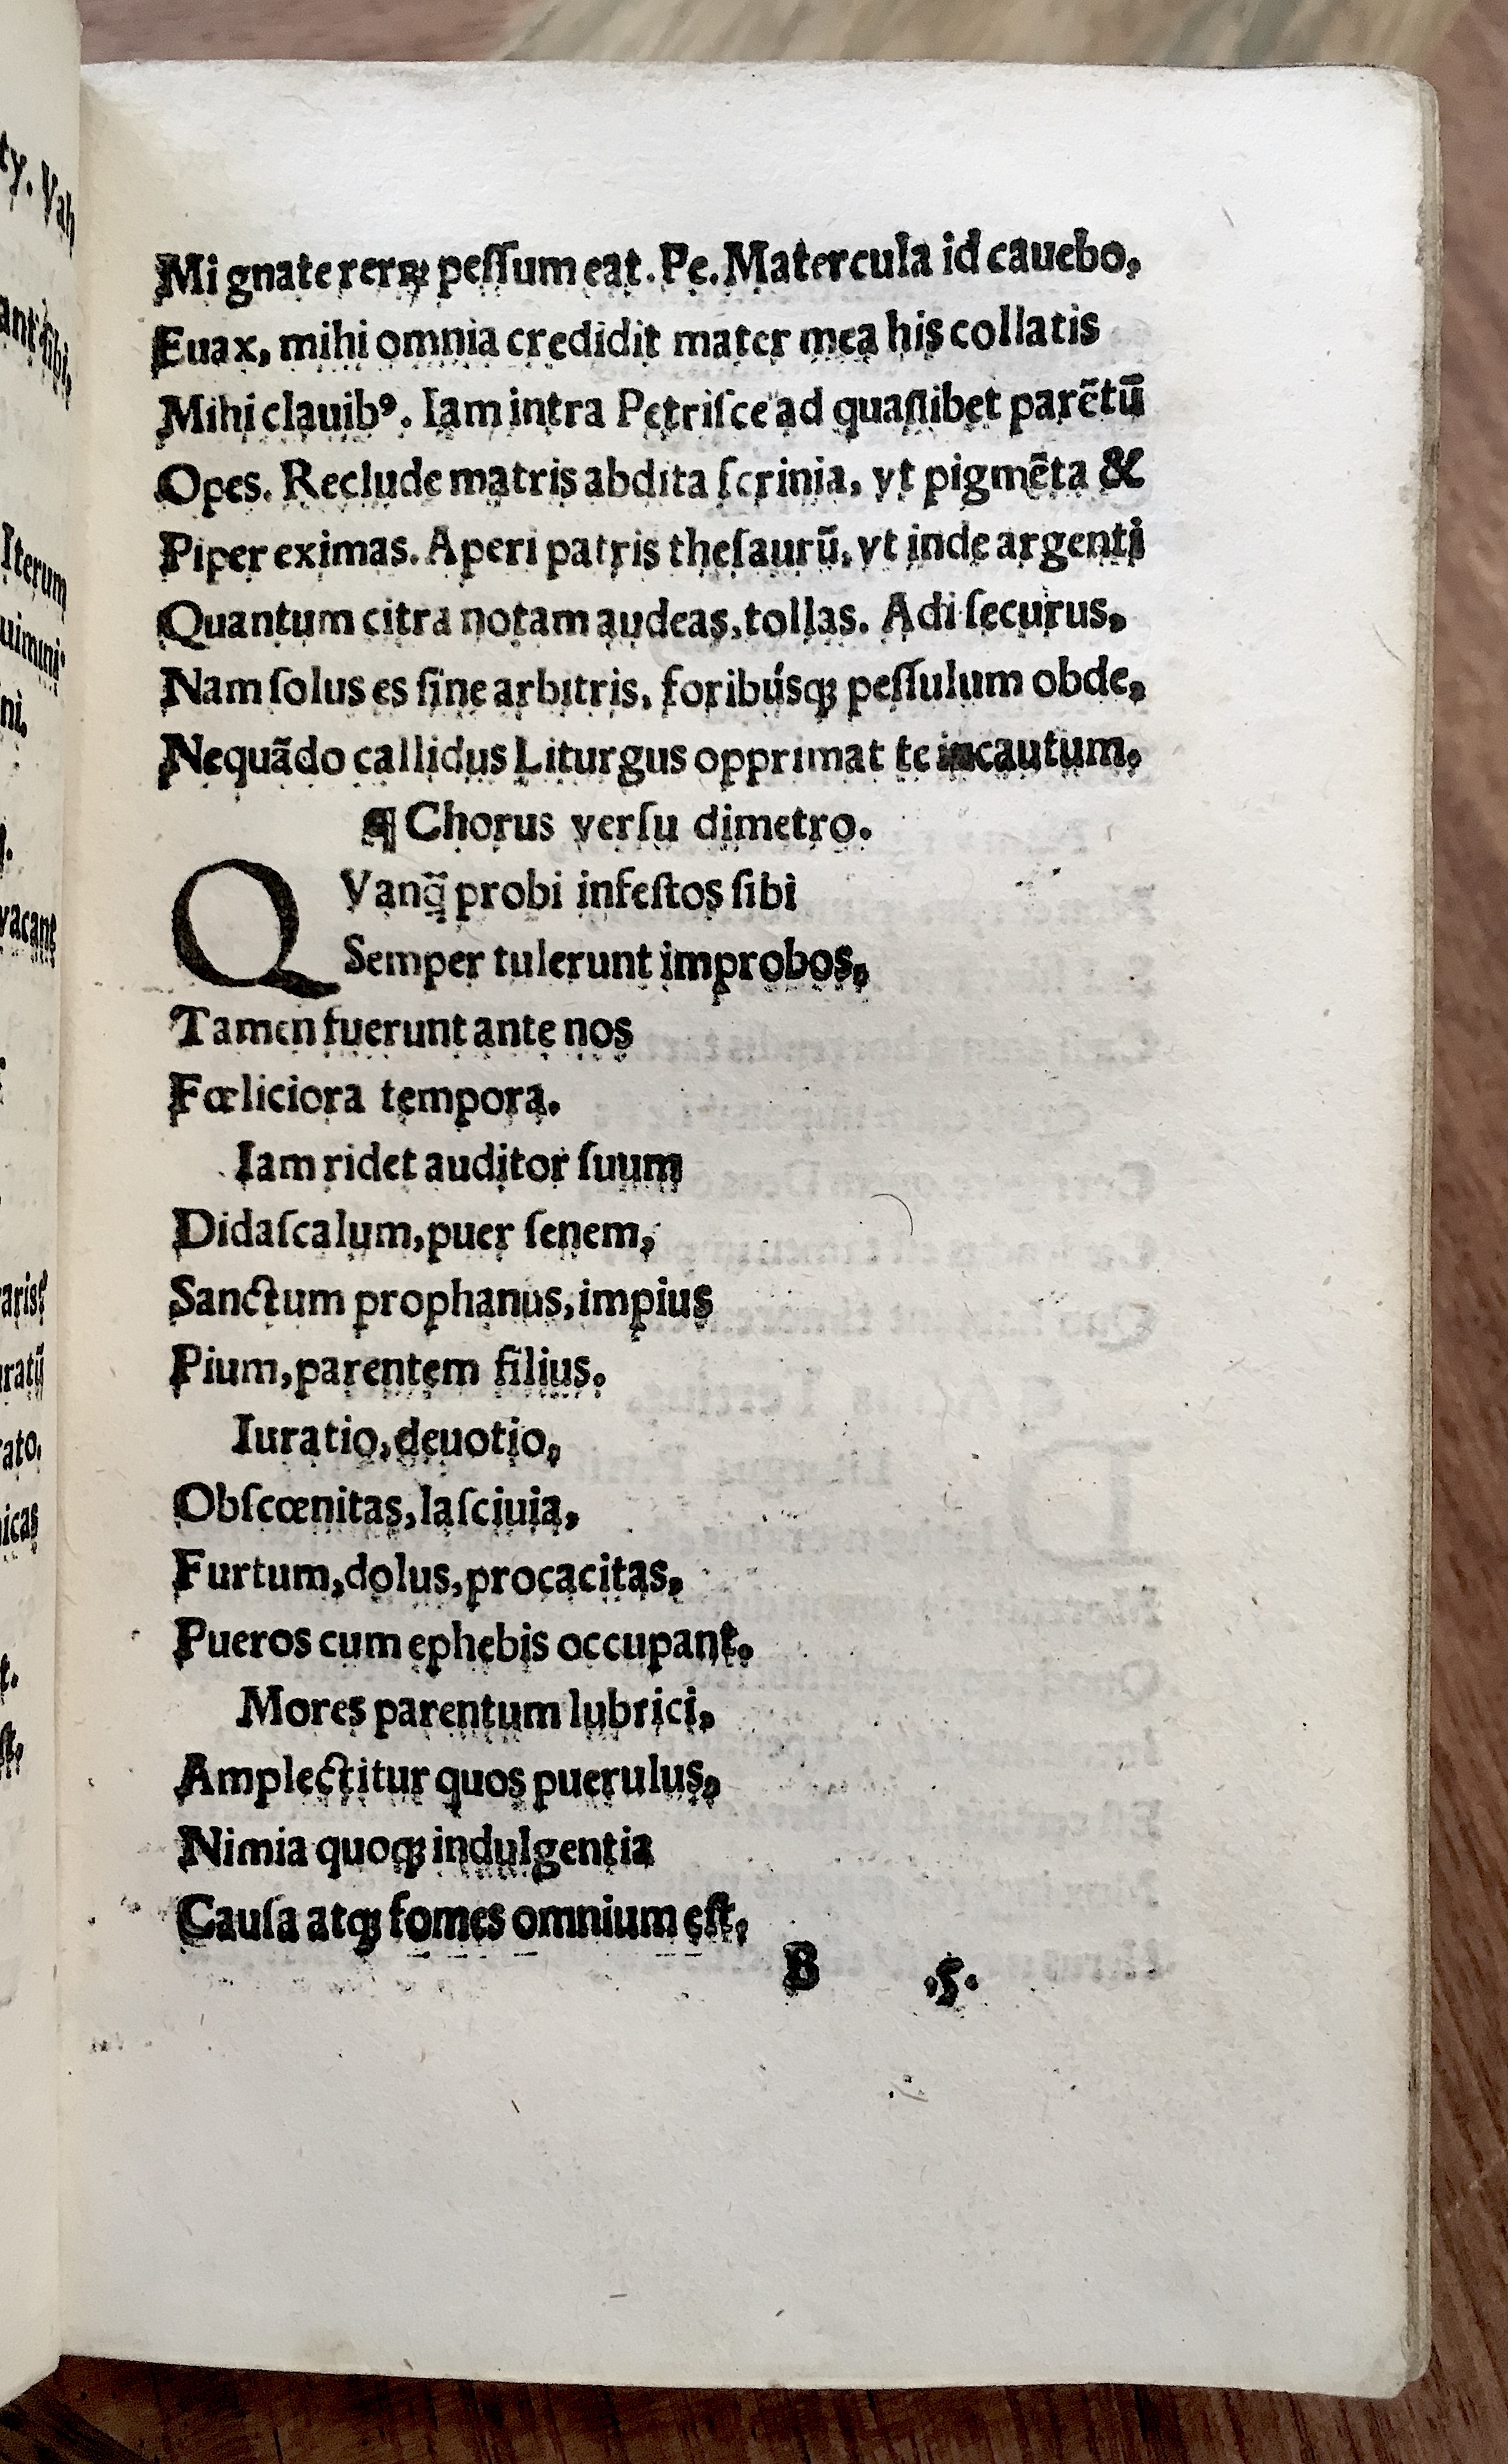 Mi gnate rerꝝ peſſum eat. Pe. Matercula id cauebo,
Euax, mihi omnia credidit mater mea his collatis
Mihi clauibꝰ. Iam intra Petriſce ad quaſlibet parẽtũ
Opes. Reclude matris abdita ſcrinia, vt pigmẽta &
Piper eximas. Aperi patris theſaurũ, vt inde argenti
Quantum citra notam audeas, tollas. Adi ſecurus,
Nam ſolus es ſine arbitris, foribúsqꝫ peſſulum obde,
Nequãdo callidus Liturgus opprimat te incautum.
¶ Chorus verſu dimetro.
QVanq̃ probi infeſtos ſibi
Semper tulerunt improbos,
Tamen fuerunt ante nos
Fœliciora tempora.
Iam ridet auditor ſuum
Didaſcalum, puer ſenem,
Sanctum prophanus, impius
Pium, parentem filius.
Iuratio, deuotio,
Obſcœnitas, laſciuia,
Furtum, dolus, procacitas,
Pueros cum ephebis occupant.
Mores parentum lubrici,
Amplectitur quos puerulus,
Nimia quoqꝫ indulgentia
Cauſa atqꝫ fomes omnium eſt,
B .5.
ty. Vah
Iterum
ni.
vacant